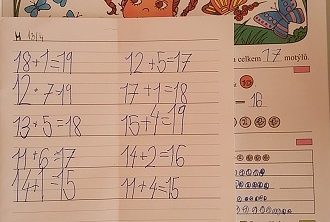 celkem 17 motýlů.
H 13/4
18+1=19 12+5=17
12+7=19 17+1=18
13+5=18 15+4=19
11+6=17 14+2=16
14+1=15 11+4=15
16